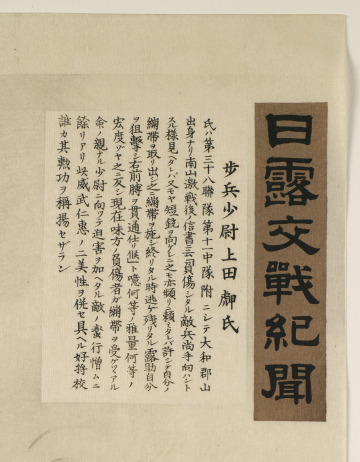 日露交戰紀聞
歩兵少尉上田 氏
氏ハ第三十八聯隊第十一中隊附ニシテ大和郡山
出身ナリ南山激戰後ノ信書ニ云 負傷シタル敵兵尚手向ハント
スル樣見ヘタレバ又モヤ短銃ヲ向ケシニ
繃帶ヲ取リ出シ之ニ繃帶ヲ施シ終リタル時逃ケ殘リタル露助自分
ヲ狙撃シ右前膊ヲ貫通仕リ候ト噫何等ノ雅量何等ノ
宏度ゾヤ之ニ反シ現在味方ノ負傷者ガ繃帶ヲ受ケツヽアル
命ノ親ナル少尉ニ向ツテ迫害ヲ加ヘタル敵ノ蠻行憎ムニ
餘リアリ 威武仁惠ノ二美性ヲ併セ具ヘル好將校
誰カ其勲功ヲ稱揚セザラン